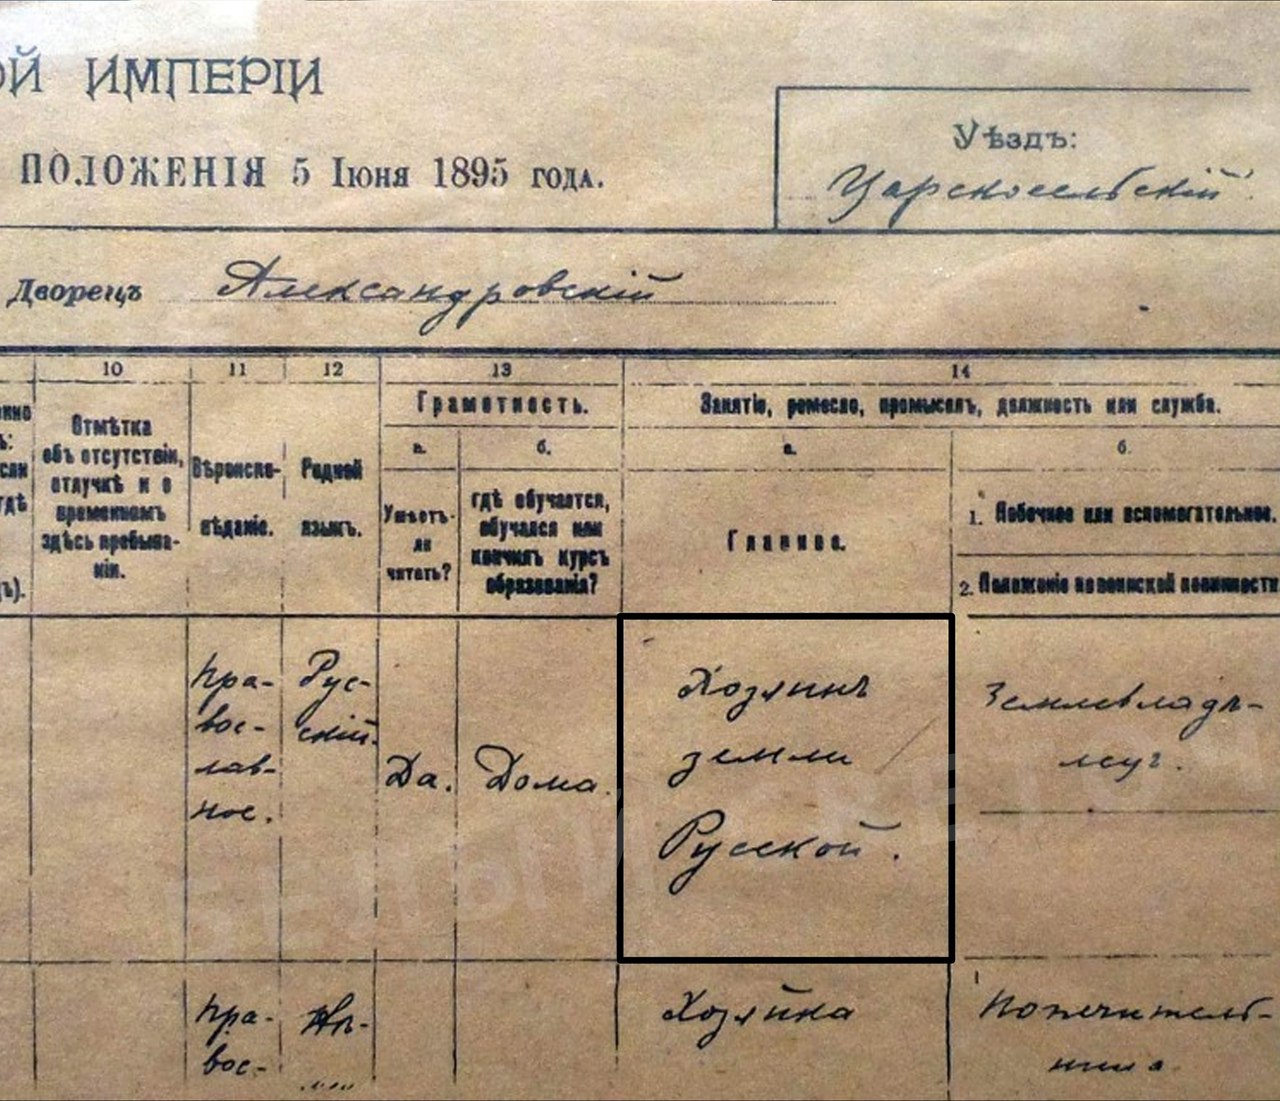 ОЙ ИМПЕРІИ
ПОЛОЖЕНІЯ 5 Іюня 1895 года.
Уѣздъ:
Царскосельскій
Дворецъ Александровскій
10 11 12 13 14
Грамотность.
Занятіе, ремесло, промыселъ, должность или служба.
а. б. а. б.
Отмѣтка
объ отсутствіи,
отлучкѣ и о
временномъ
здѣсь пребыва-
ніи.
Вѣроиспо-
вѣданіе.
Родной
языкъ.
Умѣетъ-
ли
читать?
гдѣ обучается,
обучался или
кончилъ курсъ
образованія?
Главное.
1. Побочное или вспомогательное.
2. Положеніе по воинской повинности
Пра-
вос-
лав-
ное.
Рус-
скій.
Да.
Дома.
Хозяинъ
земли
Русской.
Землевладѣ-
лецъ.
Пра-
вос-
Нѣ-
Хозяйка
Попечитель-
ница
БЕЛЫЙ